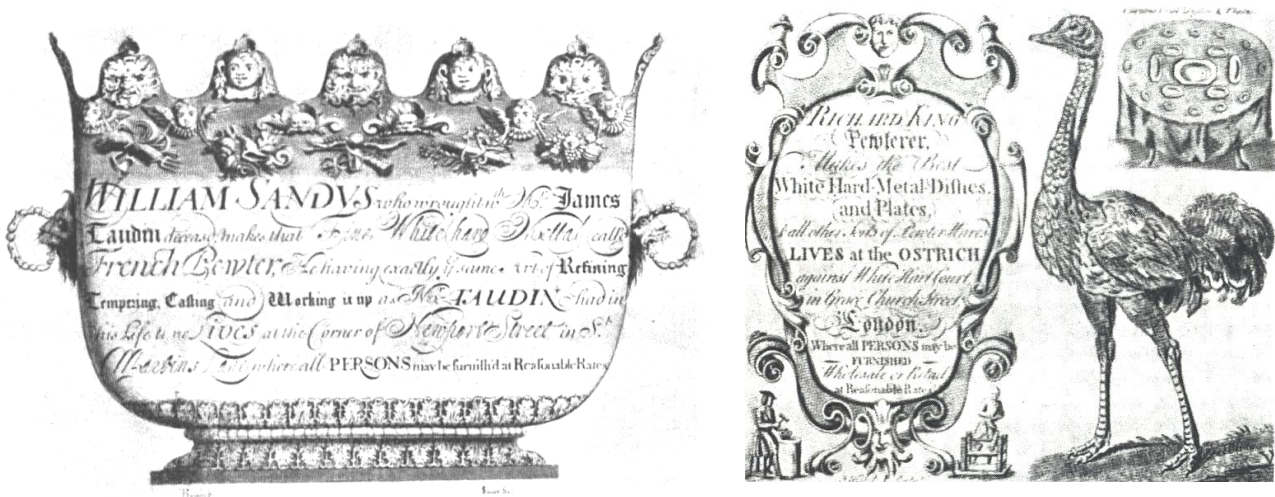 WILLIAM SANDYS who wrought wth Mr. James
Taudin deceas'd, makes that Fine White hard Mettal call'd
French Pewter, He having exactly ye same Art of Refining
Tempering, Casting and Working it up as Mr. TAUDIN had in
his Life time LIVES at the Corner of Newport Street in St.
Martins Lane where all PERSONS may be furnish'd at Reasonable Rates
RICHARD KING
Pewterer,
Makes the Best
White Hard-Metal-Dishes,
and Plates,
& all other Sorts of Pewter Wares
LIVES at the OSTRICH
against White Hart Court
in Grace Church Street
London.
Where all PERSONS may be
FURNISHED
Wholesale or Retail
at Reasonable Rates